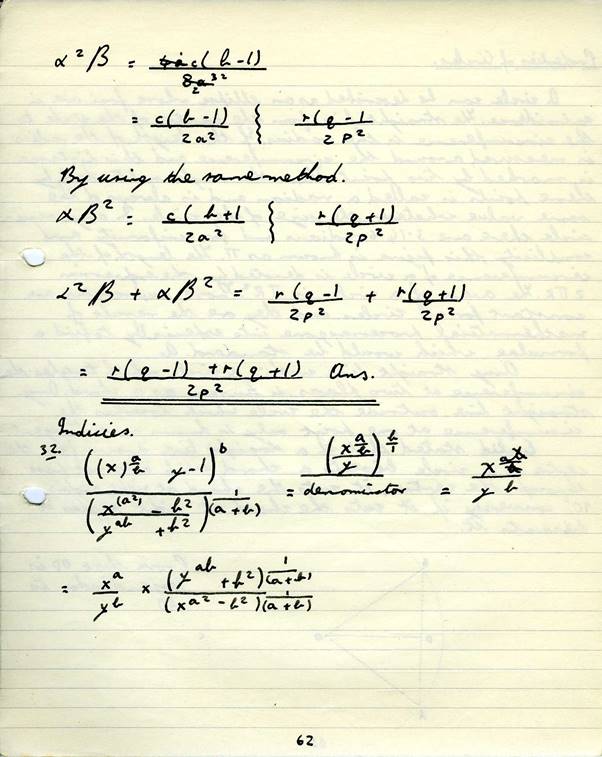 α²β = 4ac(b-1) / 8a³
2 2
= c(b-1) / 2a² } r(q-1 / 2p²
By using the same method.
αβ² = c(b+1 / 2a² } r(q+1) / 2p²
α²β + αβ² = r(q-1 / 2p² + r(q+1) / 2p²
= r(q-1) + r(q+1) / 2p² Ans.
Indicies.
32. ((x)^(a/b) y-1)^b / (x^(a²) - b² / y^(ab) + b²)^(1/(a+b)) = (x^(a/b) / y)^(b/1) / denominctor = x^(ab/b) / y^b
= x^a / y^b × (y^(ab) + b²)^(1/(a+b)) / (x^(a²) - b²)^(1/(a+b))
62